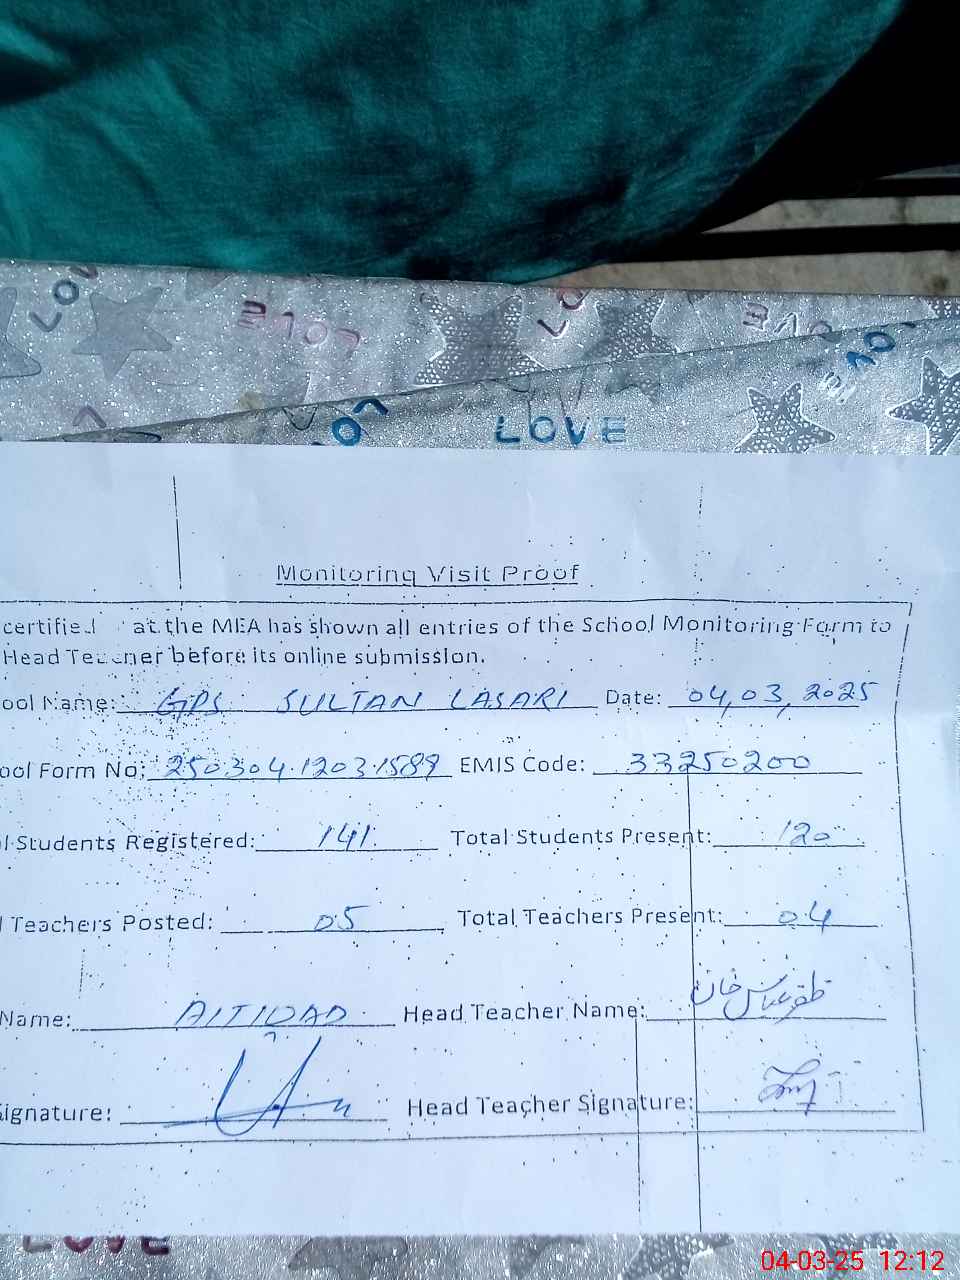 LOVE
LOVE
LOVE
LOVE
Monitoring Visit Proof
certified at the MEA has shown all entries of the School Monitoring Form to
Head Teacher before its online submission.
ool Name: GPS SULTAN LASARI Date: 04,03,2025
ool Form No: 250304.1203.1589 EMIS Code: 33250200
l Students Registered: 141 Total Students Present: 120
l Teachers Posted: 05 Total Teachers Present: 04
Name: Head Teacher Name: ظفر عباس خان
ignature: Head Teacher Signature:
LOVE
04-03-25 12:12